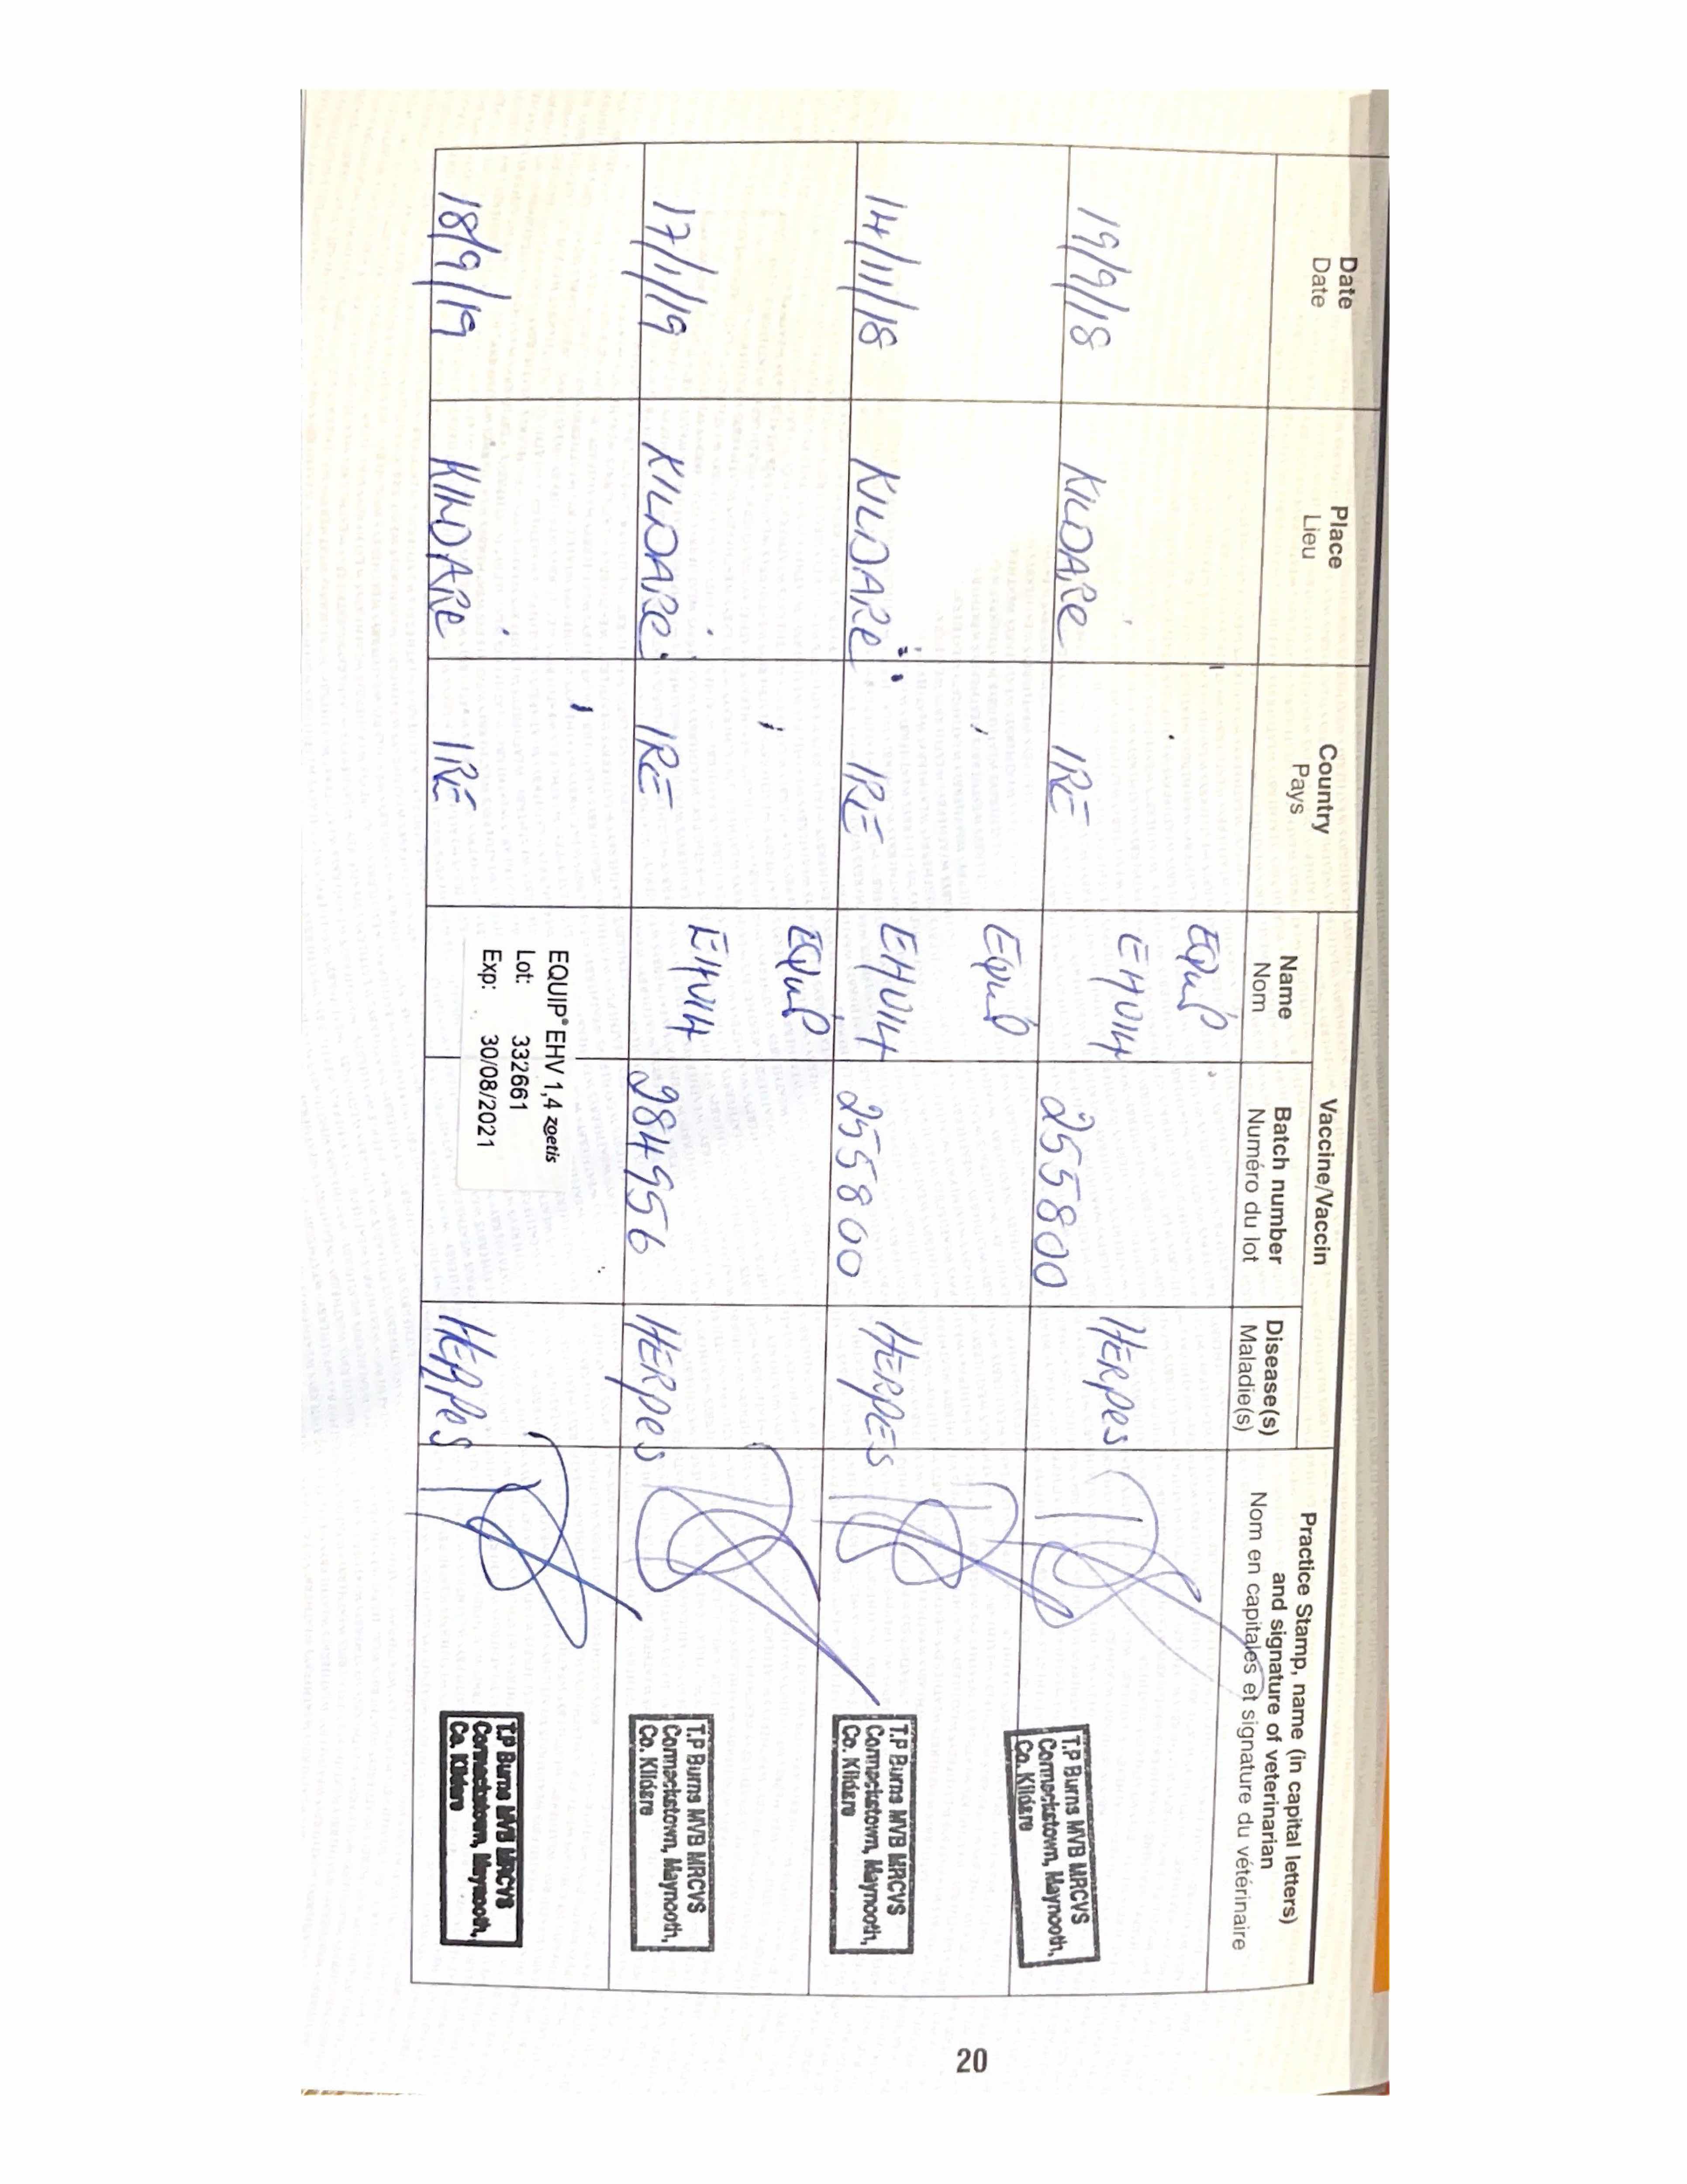 Date
Date
Place
Lieu
Country
Pays
Vaccine/Vaccin
Name
Nom
Batch number
Numéro du lot
Disease(s)
Maladie(s)
Practice Stamp, name (in capital letters)
and signature of veterinarian
Nom en capitales et signature du vétérinaire
19/9/18
KILDARE
IRE
EQUIP
EHV14
255800
HERPES
T.P Burns MVB MRCVS
Cormackstown, Maynooth,
Co. Kildare
14/11/18
KILDARE
IRE
EQUIP
EHV14
255800
HERPES
T.P Burns MVB MRCVS
Cormackstown, Maynooth,
Co. Kildare
17/1/19
KILDARE
IRE
EQUIP
EHV14
284956
HERPES
T.P Burns MVB MRCVS
Cormackstown, Maynooth,
Co. Kildare
18/9/19
KILDARE
IRE
EQUIP® EHV 1,4 zoetis
Lot: 332661
Exp: 30/08/2021
HERPES
T.P Burns MVB MRCVS
Cormackstown, Maynooth,
Co. Kildare
20